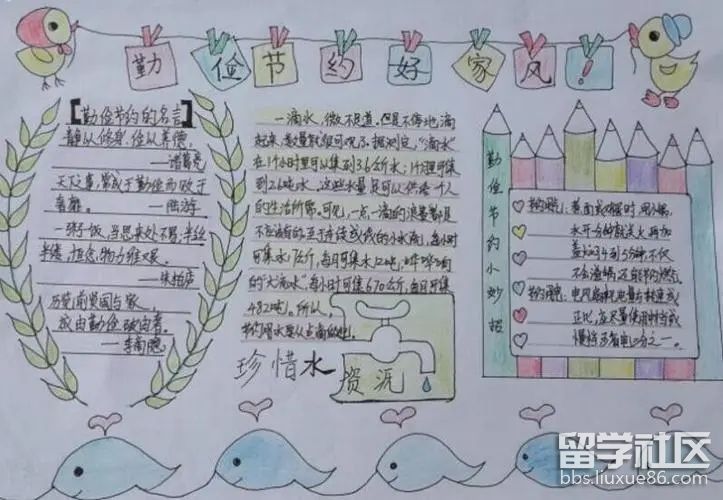 勤俭节约好家风!
【勤俭节约的名言】
静以修身，俭以养德。
——诸葛亮
天下之事，常成于勤俭而败于
奢靡。——陆游
一粥一饭，当思来处不易；半丝
半缕，恒念物力维艰。
——朱柏庐
历览前贤国与家，
成由勤俭破由奢。
——李商隐
一滴水，微不足道。但是不停地滴
起来，数量就很可观了。据测定，"滴水"
在1个小时里可以集到3.6公斤水；1个月可集
到2.6吨水。这些水量足可以供给一个人
的生活所需。可见，一点一滴的浪费都是
不应该有的。至于连续成线的小水流，每小时
可集水17公斤，每月可集水12吨；哗哗响
的"大流水"，每小时可集670公斤，每月可集
482吨。所以，
节约用水要从点滴做起。
珍惜水
资源
勤俭节约小妙招
节约用气：煮面或
水开
不
节约用电：电风扇耗电量与转速成
正比，应尽量使用中档或
慢档
留学社区
bbs.liuxue86.com